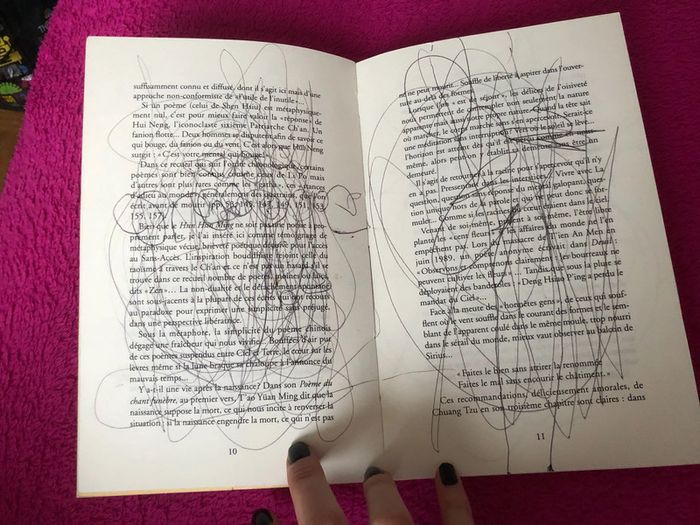 suffisamment connu et diffusé, dont il s'agit ici mais d'une
approche non-conformiste de « l'utile de l'inutile »...
Si un poème (celui de Shen Hsiu) est métaphysique-
ment nul, c'est pour mieux faire valoir la « réponse » de
Hui Neng, l'iconoclaste sixième Patriarche Ch'an. Un
fanion flotte... Deux hommes se disputent afin de savoir ce
qui bouge, du fanion ou du vent. C'est alors que Hui Neng
surgit : « C'est votre mental qui bouge! »
Dans ce recueil qui suit l'ordre chronologique, certains
poèmes sont bien connus comme ceux de Li Po mais
d'autres sont plus rares comme les « gatha », ces « stances
d'adieu au monde », généralement des quatrains, que l'on
écrit avant de mourir (pp. 147, 149, 151, 153,
155, 157).
Bien que le Hsin Hsin Ming ne soit pas une poésie à pro-
prement parler, je l'ai inséré ici comme témoignage de
métaphysique vécue, brièveté poétique désuète pour l'accès
au Sans-Accès. L'inspiration bouddhiste rejoint celle du
taoïsme à travers le Ch'an et ce n'est pas un hasard s'il se
trouve dans ce recueil nombre de poètes, moines ou laïcs
dits « Zen »... La non-dualité et le détachement spontané
sont sous-jacents à la plupart de ces écrits qui ont recours
au paradoxe pour exprimer une simplicité sans préjugé,
dans une perspective libératrice.
Sous la métaphore, la simplicité du poème chinois
dégage une fraîcheur qui nous vivifie... Bouffées d'air pur
de ces poèmes suspendus entre Ciel et Terre, le cœur sur les
lèvres même si la lune braque sa chaloupe à l'annonce du
mauvais temps...
Y a-t-il une vie après la naissance? Dans son Poème du
chant funèbre, au premier vers, T'ao Yuan Ming dit que la
naissance suppose la mort, ce qui nous incite à renverser la
situation : si la naissance engendre la mort, ce qui n'est pas
10
né ne peut mourir... Souffle de liberté à aspirer dans l'ouver-
ture au-delà des formes.
Lorsque l'on « est de séjour », les délices de l'oisiveté
nous permettent de contempler non seulement la nature
apparente mais aussi notre propre nature. Quand la tête sait
où marcher, le corps marche sans s'en apercevoir. Serait-ce
une méditation sans interruption? Vers où le soleil se lève...
l'horizon est autant dès qu'il en nous-
même, alors peut-on y établir sa demeure sans être un
demeuré.
Il s'agit de retourner à la racine pour s'apercevoir qu'il n'y
en a pas. Pressentir dans les interstices... Vivre avec la
question, quelques sans réponse du mental galopant, ques-
tion unique hors de la parole et qui ne peut donc se for-
muler... Comme si les racines poussaient dans le ciel.
Venant de soi-même, allant à soi-même, l'être libre
plante les « cent fleurs » et les affaires du monde ne l'en
empêchent pas. Lors du massacre de T'ien An Men en
juin 1989, un poète anonyme écrivait dans Deuil :
« Observons et comprenons clairement : les bourreaux ne
peuvent cultiver les fleurs »... Tandis que sous la pluie se
déployaient des banderoles : « Deng Hsiao P'ing a perdu le
mandat du Ciel »...
Face à la meute des « honnêtes gens », de ceux qui souf-
flent où le vent souffle dans le courant des formes et le sem-
blant de l'apparent coulé dans le même moule, trop nourri
dans le sérail du monde, mieux vaut observer au balcon de
Sirius...
« Faites le bien sans attirer la renommée
Faites le mal sans encourir le châtiment. »
Ces recommandations, délicieusement amorales, de
Chuang Tzu en son troisième chapitre sont claires : dans
11